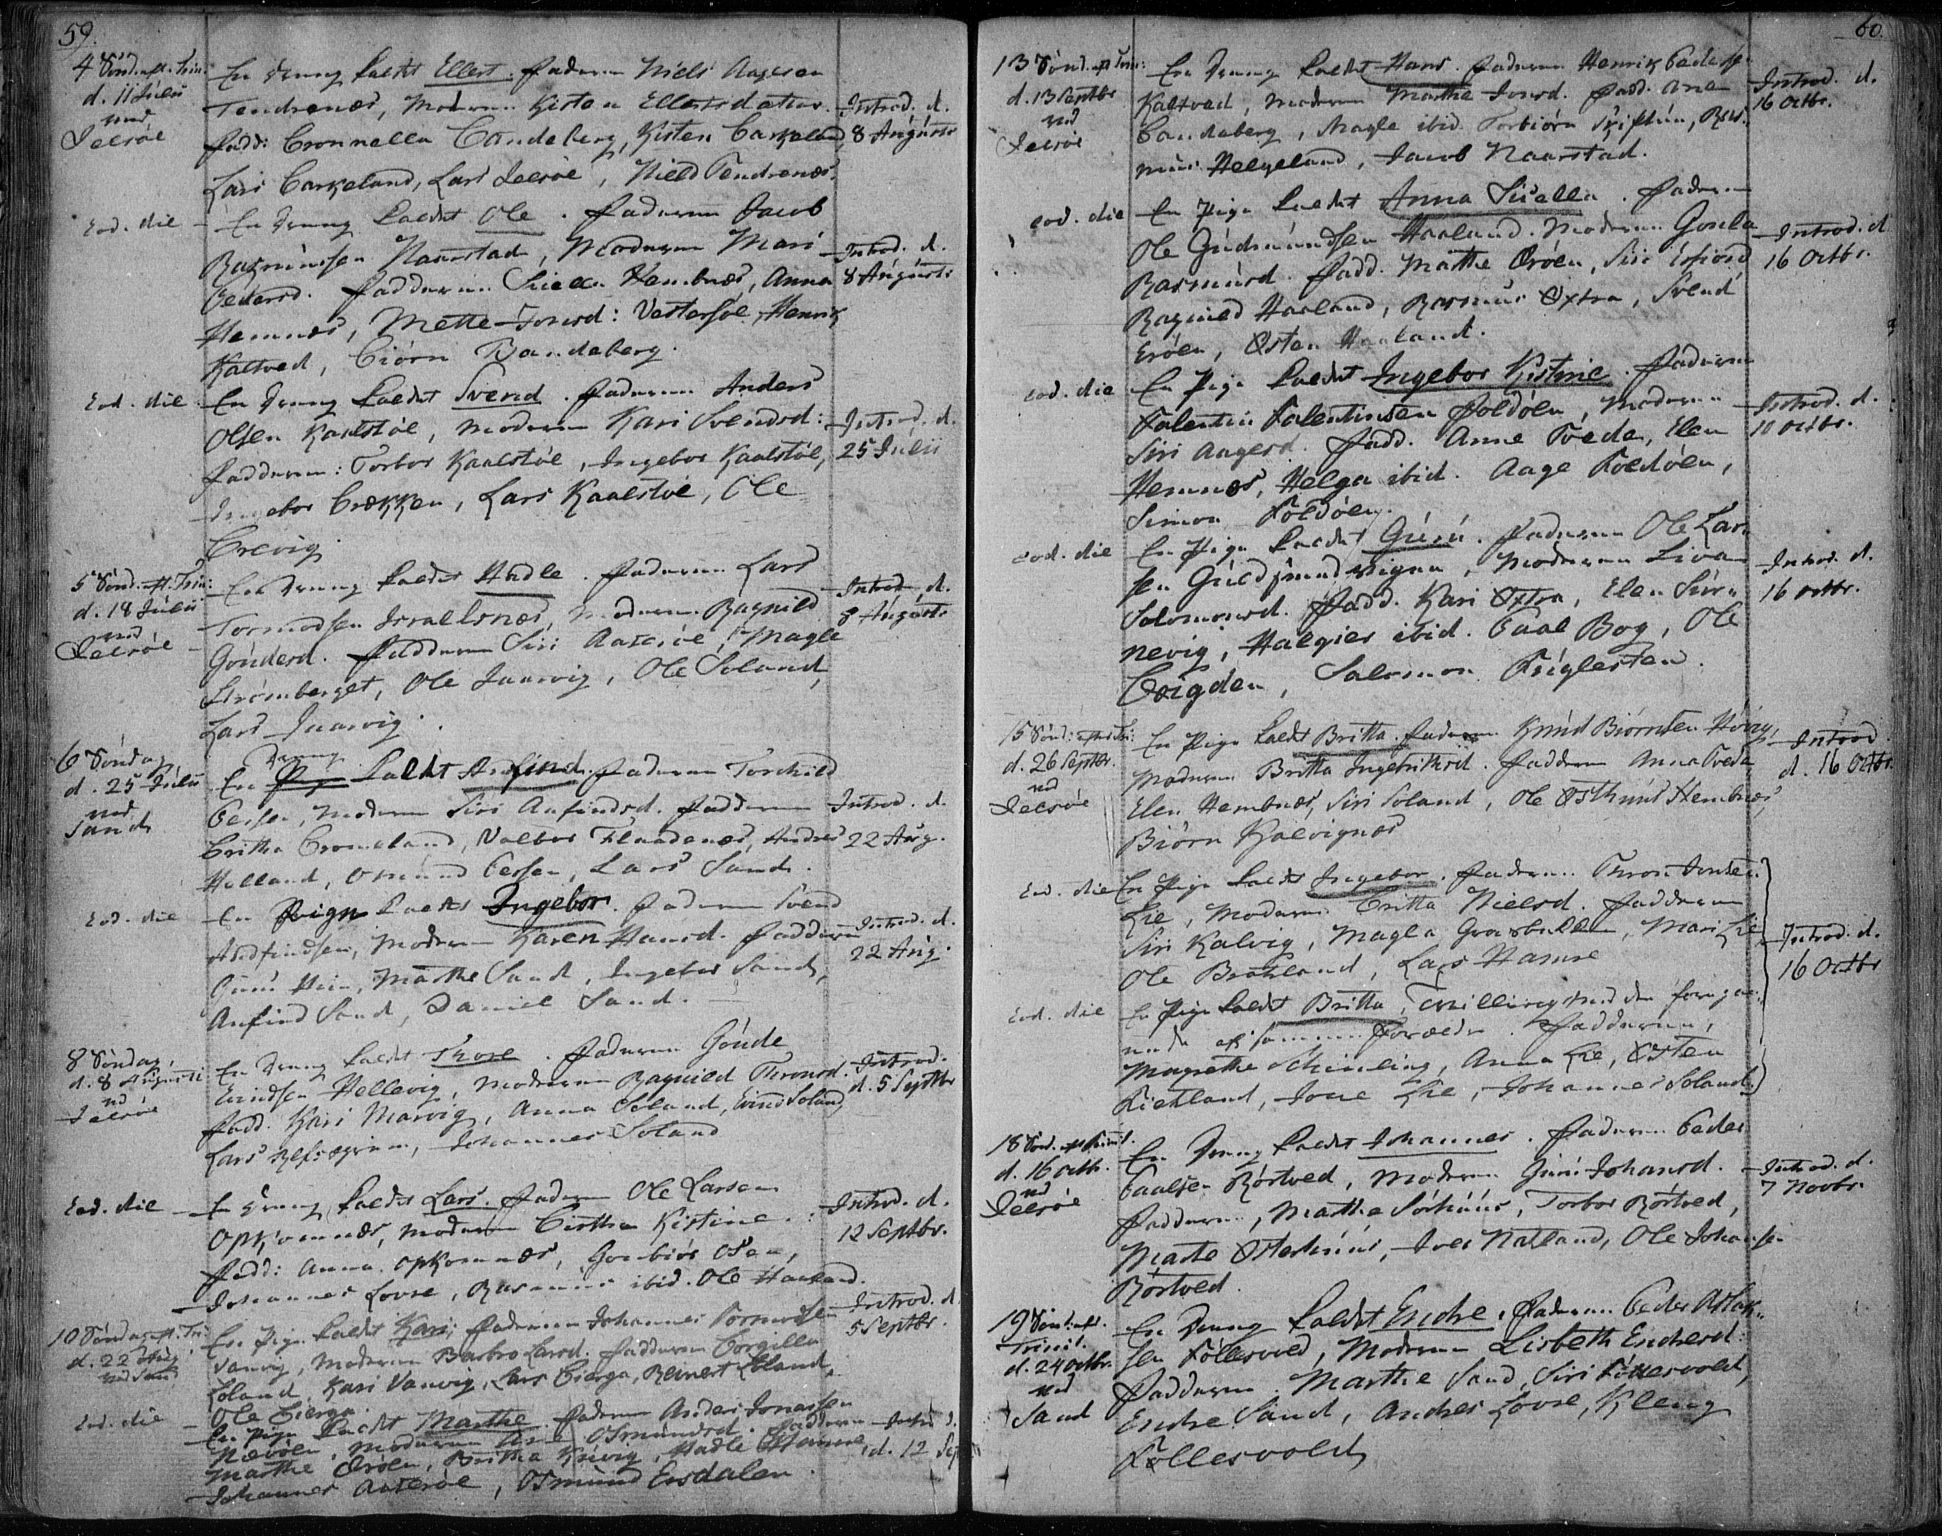 59.
4 Sønd. aft. Trin.
d. 11 Julii
ved
Jelsøe
En dreng kaldt Ellert. Faderen Niels Aagesen
Tendrenæs, Moderen Kisten Ellertsdatter.
Fadd: Cronnella Bandeberg, Kisten Barkeland,
Lars Barkeland, Lars Jelsøe, Niels Tendrenæs.
Introd. d.
8 Augusti
Eod. die
En dreng kaldt Ole. Faderen Jacob
Rasmussen Naarstad, Moderen Mari
Pedersd. Fadderne Hembnæs, Anna
Hemnæs, Mette Jonsd: Vestersøe, Henrik
Kaltved, Biørn Bandeberg.
Introd. d.
8 Augusti
Eod. die
En dreng kaldt Svend. Faderen Anders
Olsen Kaalstøe, Moderen Kari Svendsd:
Fadderne: Torbor Kaalstøe, Ingebor Kaalstøe,
Ingebor Brekken, Lars Kaalstøe, Ole
Brevig.
Introd. d.
25 Julii
5 Sønd. aft. Trin:
d. 18 Julii
ved
Jelsøe
En dreng kaldt Hadle. Faderen Lars
Tormodsen Israelsnæs, Moderen Ragnild
Gondersd. Fadderne Siri Aaserøe, Magle
Strømberget, Ole Juarvig, Ole Soland,
Lars Juarvig.
Introd. d.
8 Augusti
6 Søndag
d. 25 Julii
ved
Sand
En dreng kaldt Anfind. Faderen Torchild
Persen, Moderen Siri Anfindsd. Fadderne
Britha Bromeland, Valbor Flaadenæs, Andres
Holland, Osmund Persen, Lars Sand.
Introd. d.
22 Aug.
Eod. die
En Pige kaldt Ingebor. Faderen Svend
Andfindsen, Moderen Karen Hansd. Fadderne
Guru Heim, Marthe Sand, Ingebor Sand,
Anfind Sand, Daniel Sand.
Introd. d.
22 Aug.
8 Søndag,
d. 8 Augusti
vd
Jelsøe
En Dreng kaldt Thore. Faderen Gonde
Evindsen Hellevig, Moderen Ragnild Thronsd.
Fadd. Kari Marvig, Anna Soland, Evind Soland,
Lars, Johannes Soland
Introd.
d. 5 Septbr
Eod. die
En dreng kaldt Lars. Faderen Ole Larsen
Opkomnæs, Moderen Birtha Kistine.
Fadd: Anna Opkomnæs, Gonbiør Osen,
Johannes Lovse, Rasmus ibid. Ole Haaland.
Introd. d.
12 Septbr.
10 Søndag aft. Tri:
d. 22 Aug
ved Sand
En Pige kaldt Kari, Faderen Johannes Tormodsen
Vanvig, Moderen Barbro Larsd. Fadderne Borgilla
Loland, Kari Vanvig, Lars Bierga, Reinert Loland,
Ole Bierga.
Introd. d.
5 Septbr.
Eod. die
En Pige kaldt Marthe. Faderen Anders Jonassen
Nerøen, Moderen Osmundsd. Fadderne
Marthe Erøen, Britha Krovig, Hadle
Johannes Aaserøe, Osmund Eesdalen.
Introd.
d. 12 Sep
60.
13 Sønd. aft Trin:
d. 13 Septbr
ved
Jelsøe
En Dreng kaldt Hans. Faderen Henrik Pedersen
Kaltved, Moderen Marthe Jonsd. Fadd. Ane
Bandeberg, Magle ibid. Torbiørn Skiftun, Ras-
mus Helgeland, Jacob Naarstad.
Introd. d.
16 Octbr.
eod. die
En Pige kaldt Anna Siselia. Faderen
Ole Gudmundsen Haaland. Moderen Gonla
Rasmusd. Fadd. Marthe Erøen, Siri
Ragnild Haaland, Rasmus Øxtra, Svend
Erøen, Østen Haaland.
Introd. d
16 Octbr.
eod. die
En Pige kaldt Ingebor Kistine. Faderen
Falentin Falentinsen Foldøen, Moderen
Siri Aagesd. Fadd. Anne Tveda, Elen
Hemnæs, Helga ibid. Aage Foldøen,
Simon Foldøen.
Introd. d.
10 Octbr.
eod. die
En Pige kaldt Guru. Faderen Ole Lar-
sen, Moderen Liva
Solomonsd. Fadd. Kari Øxtra, Elen
nevig, Halgier ibid. Paal Bog, Ole
Bøigden, Salomon Fuglesten.
Introd. d.
16 Octbr.
15 Sønd: aft Tri:
d. 26 Septbr.
vd
Jelsøe
En Pige kaldt Britta. Faderen Knud Biørnsen
Moderen Britta Ingebrithsd. Fadderne Anna Tveda
Elen Hembnæs, Siri Soland, Ole Østhuus Hembnæs,
Biørn Kalvignæs
Introd
d. 16 Octbr.
Eod. die
En Pige kaldt Ingebor. Faderen Thron Jonsen
Lie, Moderen Britta Nielsd. Fadderne
Siri Kalvig, Magla, Mari Lie
Ole Bratland, Lars Hamre
Introd. d.
16 Octbr
Eod. die
En Pige kaldt Britta, Tvilling med den foregaa-
ende af samme Forældre. Fadderne,
Magrethe Schinling, Anna Lie, Østen
Fiehland, Jone Lie, Johannes Soland.
18 Sønd. aft Trinit.
d. 16 Octb.
vd
Jelsøe
En Dreng kaldt Johannes. Faderen Peder
Paalsen Rørtved, Moderen Guri Johansd.
Fadderne, Marthe Sørhuus, Torbor Rørtved,
Marte Østerhuus, Iver Natland, Ole Johansen
Rørtved.
Introd. d.
7 Novbr.
19 Sønd. aft.
Trinit.
d. 24 Octbr.
ved
Sand
En Dreng kaldt Endre. Faderen Peder Aslak-
sen Føllesvold, Moderen Lisbeth Endresd:
Fadderne. Marthe Sand, Siri Føllesvold,
Endre Sand, Andres Lovse, Kleng
Føllesvold,